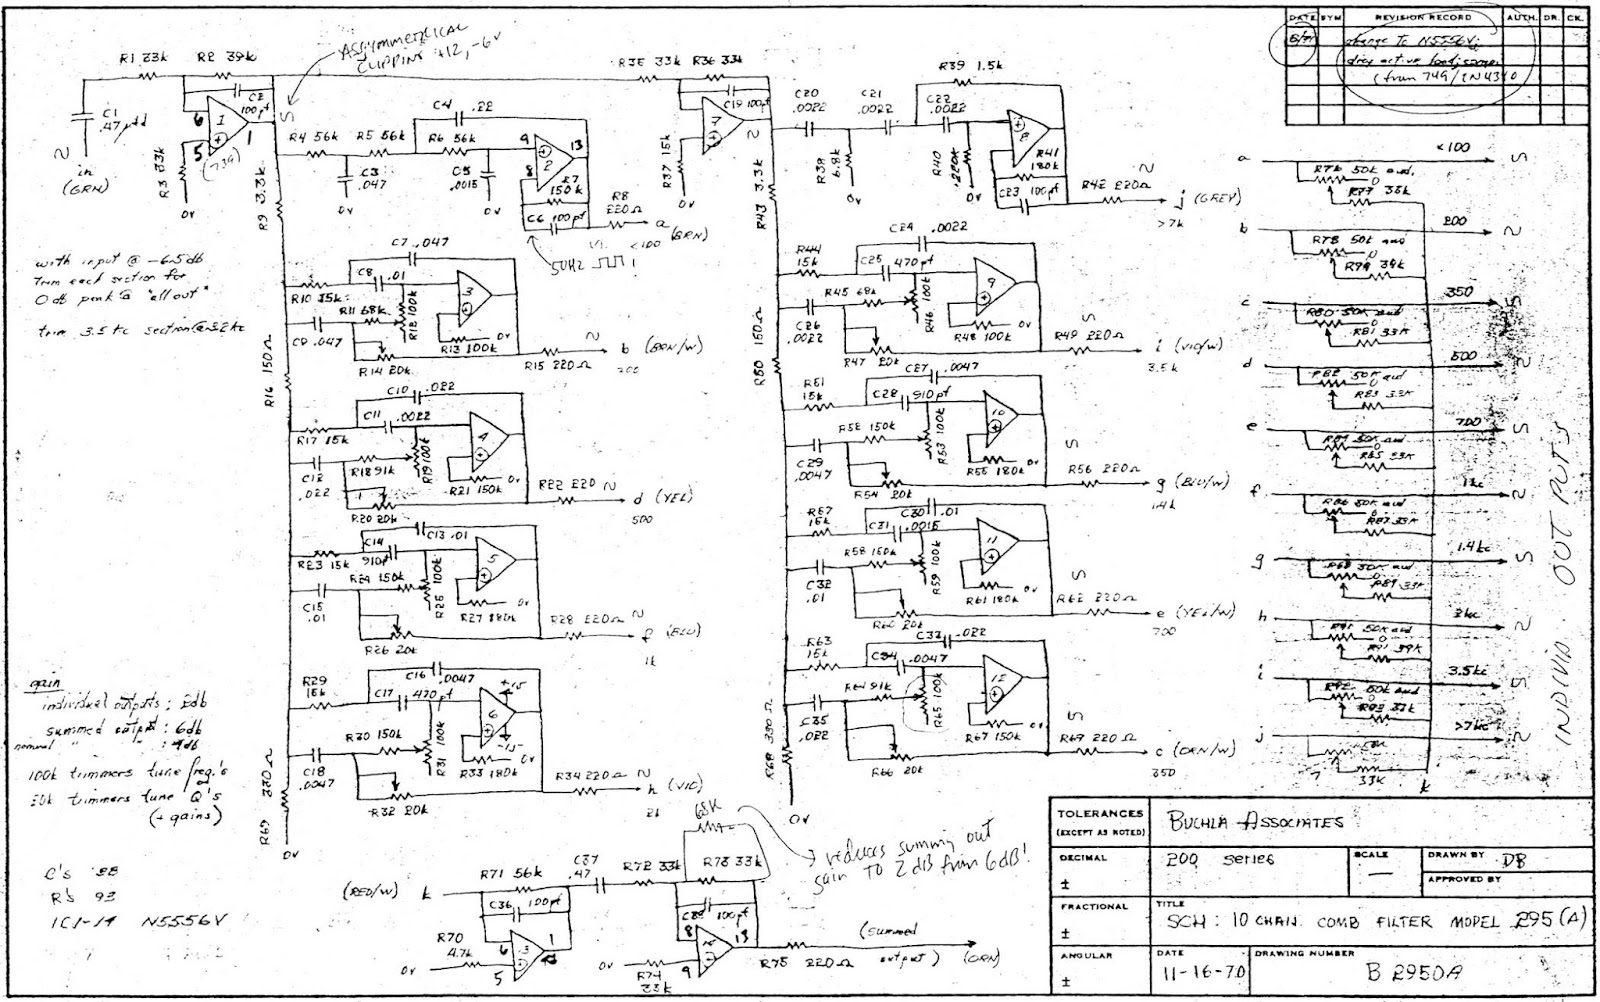 ASSYMMETRICAL
CLIPPING +12, -6v
R1 33k
R2 39k
C1
.47
C2
100pf
1
6
5
1
(739)
in
(GRN)
R3 33k
0v
R9 3.3k
R4 56k
R5 56k
R6 56k
C4
.22
C3
.047
C5
.0015
0v
0v
9
13
8
2
R7
150k
C6 100pf
R8
220Ω
a
(BRN)
<100
50HZ
with input @ -6.5db
Trim each section for
0db peak @ "all out"
trim 3.5 kc section @ 3.2kc
C7 .047
C8 .01
R10 15k
R11 68k
R12 100k
C9 .047
3
0v
R13 100k
R14 20k
R15 220Ω
b (BRN/W)
200
R16 150Ω
C10 .022
C11 .0022
R17 15k
C12
.022
R18 91k
R19 100k
4
0v
R21 150k
R20 20k
R22 220
d (YEL)
500
C13 .01
C14
910pf
R23 15k
R24 150k
R25 100k
C15
.01
5
0v
R27 180k
R26 20k
R28 220Ω
f (BLU)
1k
C16
.0047
R29
15k
C17 470pf
6
+15
-15
R30 150k
R31 100k
C18
.0047
R33 180k
0v
R32 20k
R34 220Ω
h (VIO)
2k
R69 330Ω
0v
gain
individual outputs :
summed output : 6db
nominal " " :
100k trimmers tune freq.'s
20k trimmers tune Q's
(+ gains)
C's 38
R's 93
IC1-14 N5556V
R35 33k
R36 33k
C19 100pf
7
R37 15k
0v
R43 3.3k
C20
.0022
C21
.0022
C22
.0022
R39 1.5k
R38
6.8k
0v
R40
220k
0v
8
R41
180k
C23 100pf
R42 220Ω
j (GREY)
>7k
R44
15k
C24
.0022
C25
470pf
R45 68k
R46 100k
C26
.0022
9
0v
R48 100k
R47 20k
R49 220Ω
i (VIO/W)
3.5k
R50 150Ω
R51
15k
C27 .0047
C28 910pf
R52 150k
R53 100k
C29
.0047
10
0v
R55 180k
R54 20k
R56 220Ω
g (BLU/W)
1.4k
R57
15k
C30 .01
C31 .0015
R58 150k
R59 100k
C32
.01
11
0v
R61 180k
R60 20k
R62 220Ω
e (YEL/W)
700
R63
15k
C33 .022
C34 .0047
R64 91k
R65 100k
C35
.022
12
R67 150k
R66 20k
R69 220Ω
c (ORN/W)
350
R68 330Ω
0v
68K
reduces summing out
gain TO 2 dB from 6dB!
(RED/W) k
R71 56k
C36 100pf
C37
.47
R72 33k
R73 33k
100pf
R70
4.7k
0v
6
5
1
8
9
13
0v
R74
33k
R75
220Ω
(summed
output)
(ORN)
DATE SYM REVISION RECORD AUTH. DR. CK.
8/71 change to N5556V;
(from 749/2N4340
a <100
R76 50k aud.
R77 33k
b 200
R78 50k aud
R79 39k
c 350
R80 50K aud
R81 33K
d 500
R82 50K aud
R83 33K
e 700
R84 50K aud
R85 33K
f 1kc
R86 50K aud
R87 33K
g 1.4kc
R88 50K aud
R89 33K
h 2kc
50K aud
39K
i 3.5kc
R92 50K aud
R93 33K
j >7kc
33K
k
INDIVID. OUTPUTS
TOLERANCES
(EXCEPT AS NOTED)
DECIMAL
±
FRACTIONAL
±
ANGULAR
±
BUCHLA ASSOCIATES
200 series
SCALE
—
DRAWN BY DB
APPROVED BY
TITLE
SCH: 10 CHAN. COMB FILTER MODEL 295 (A)
DATE
11-16-70
DRAWING NUMBER
B 2950A